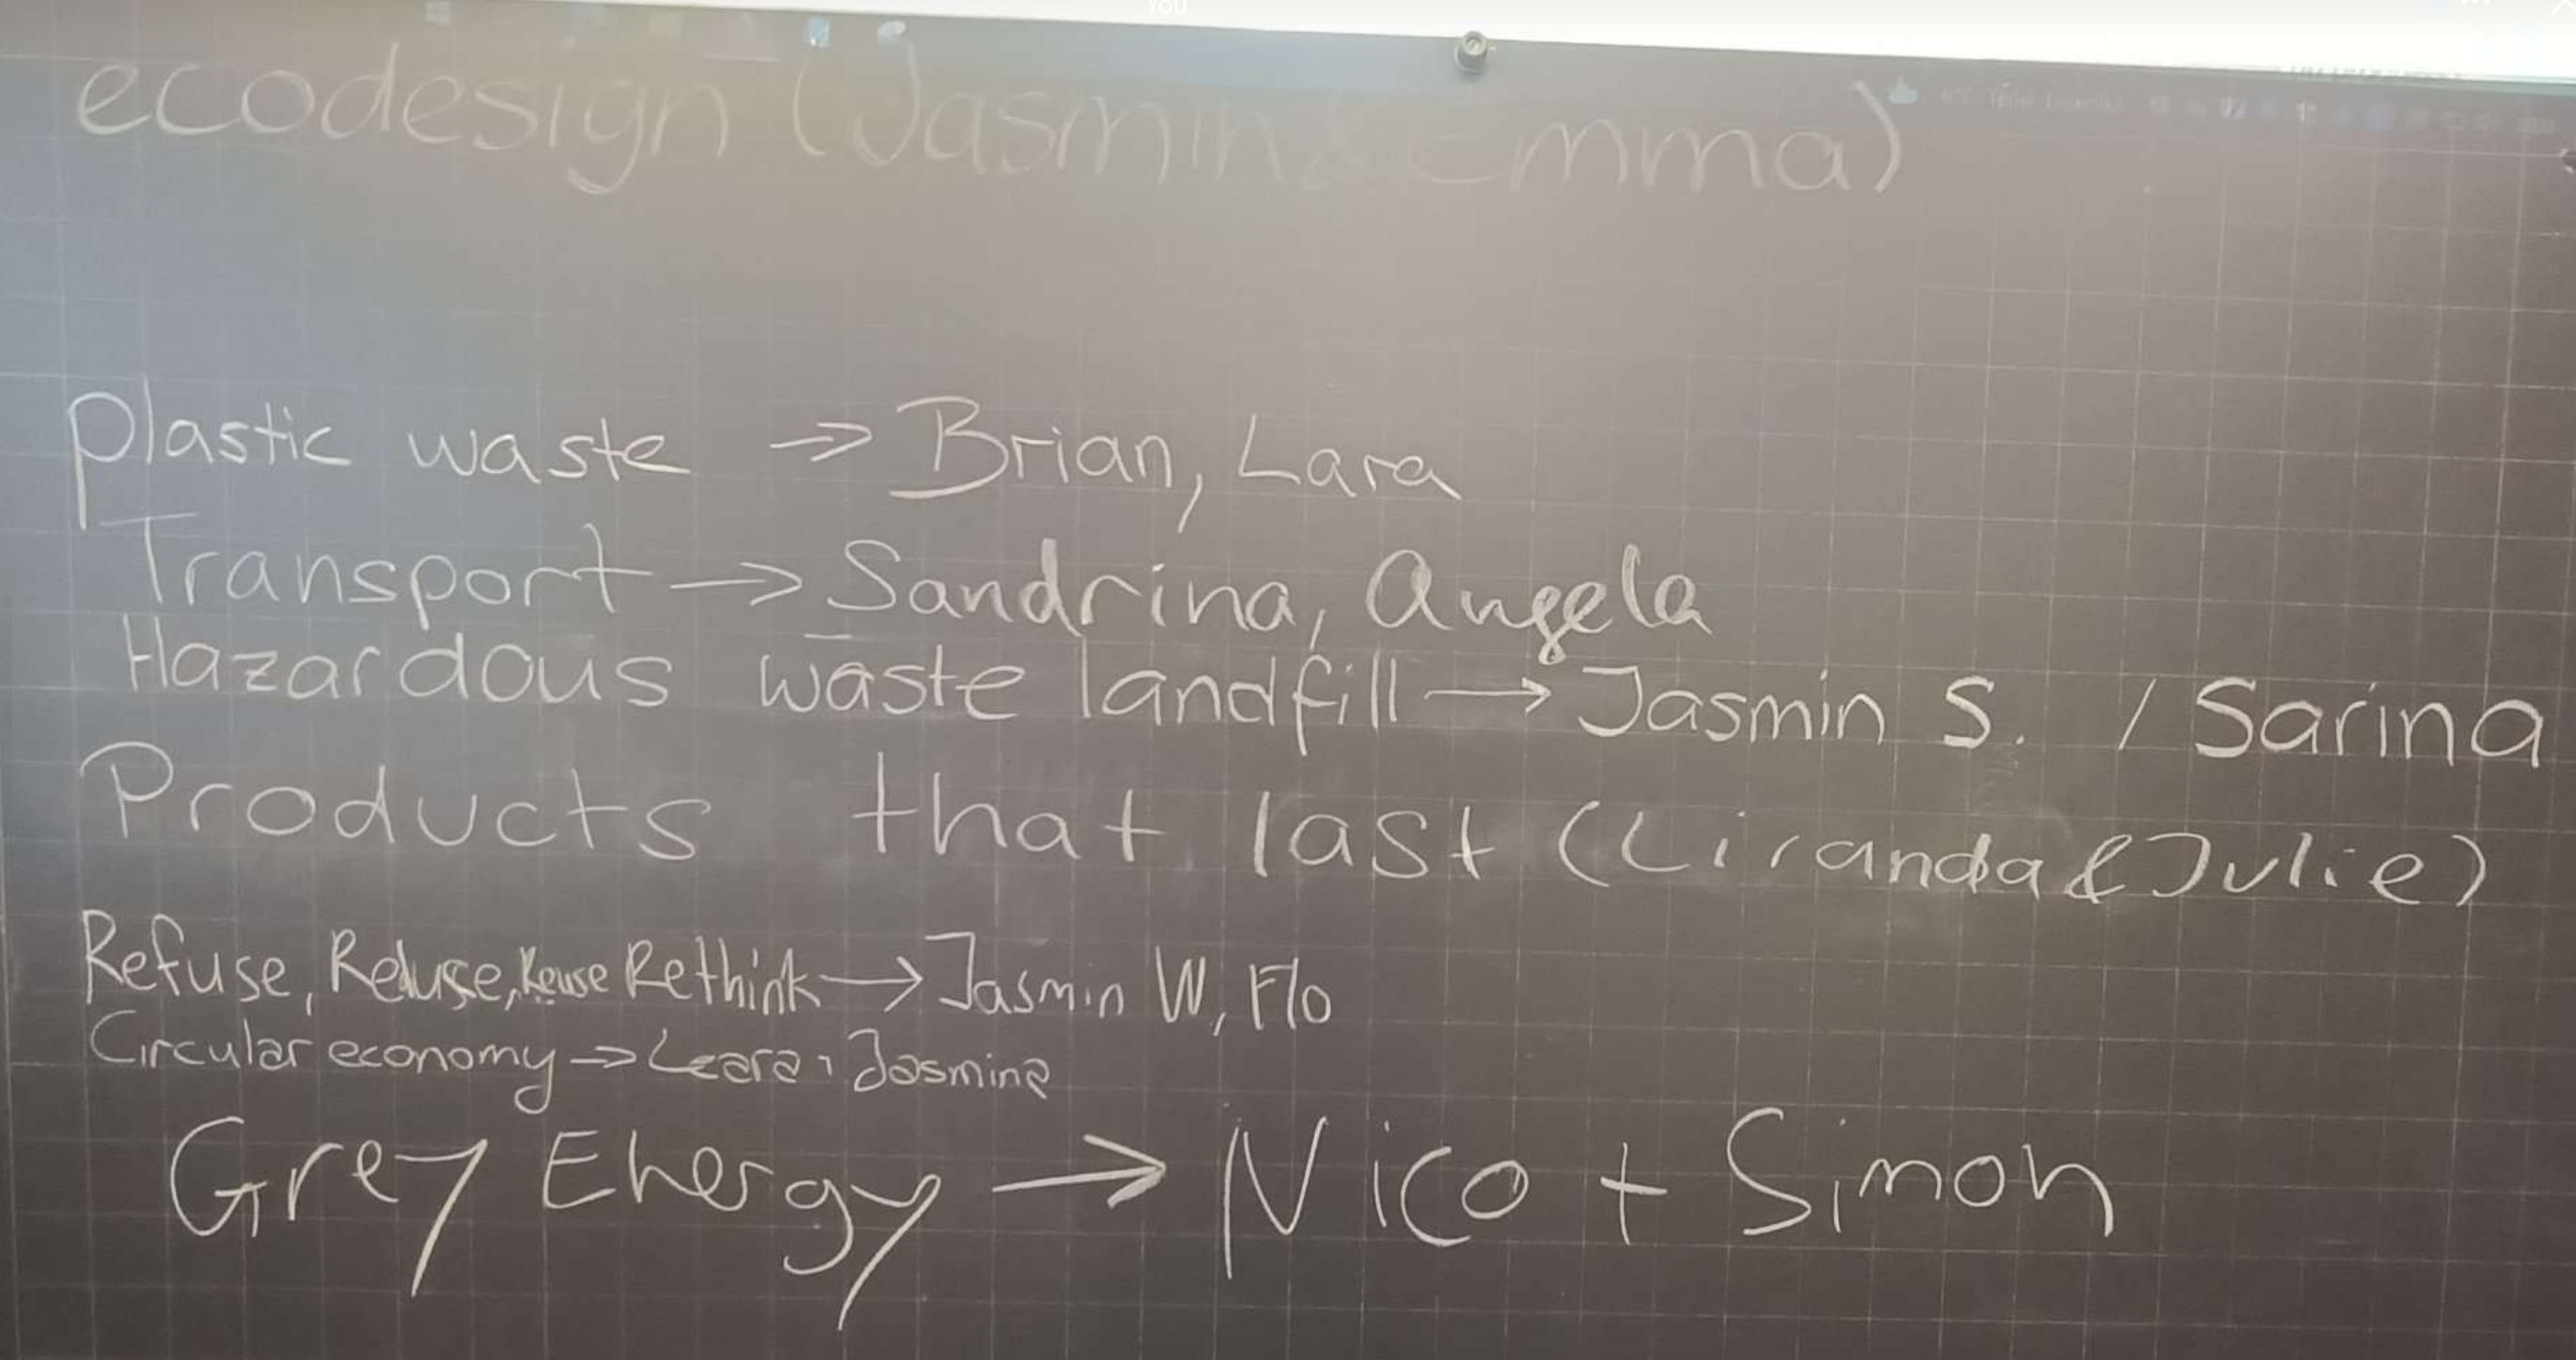 You
ecodesign (Jasmin & Emma)
Plastic waste → Brian, Lara
Transport → Sandrina, Angela
Hazardous waste landfill → Jasmin S. / Sarina
Products that last (Liranda & Julie)
Refuse, Reduse, Reuse Rethink → Jasmin W, Flo
Circular economy → Leara, Jasmine
Grey Energy → Nico + Simon